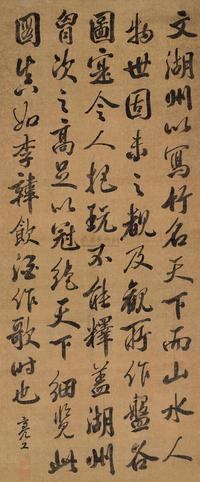 文湖州以寫竹名天下而山水人
物世固未之覩及觀所作盤谷
圖塞令人把玩不能釋蓋湖州
胷次之高足以冠絶天下細覽此
圖真如李韓飲酒作歌時也
亮工